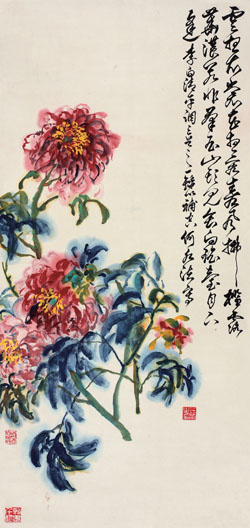 雲想衣裳花想容春風拂檻露
華濃若非群玉山頭見會向瑤臺月下
逢李白清平調三首之一補何水法